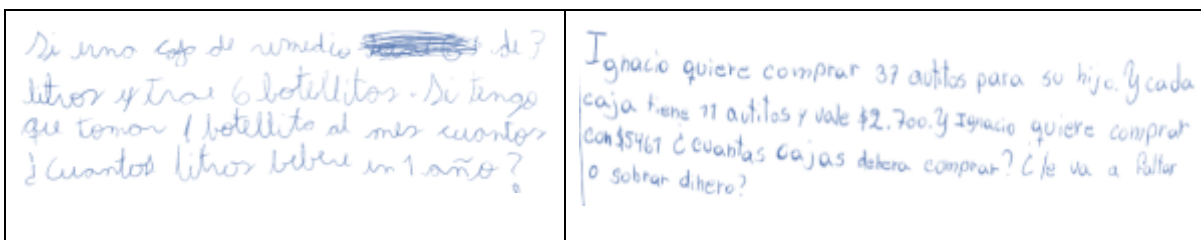 Si una caja de remedio de 3
litros y trae 6 botellitos. Si tengo
que tomar 1 botellito al mes cuantos
¿Cuantos litros bebere en 1 año?
Ignacio quiere comprar 37 autitos para su hijo. Y cada
caja tiene 11 autitos y vale $2.700. Y Ignacio quiere comprar
con $5467 ¿cuantas cajas debera comprar? ¿le va a faltar
o sobrar dinero?